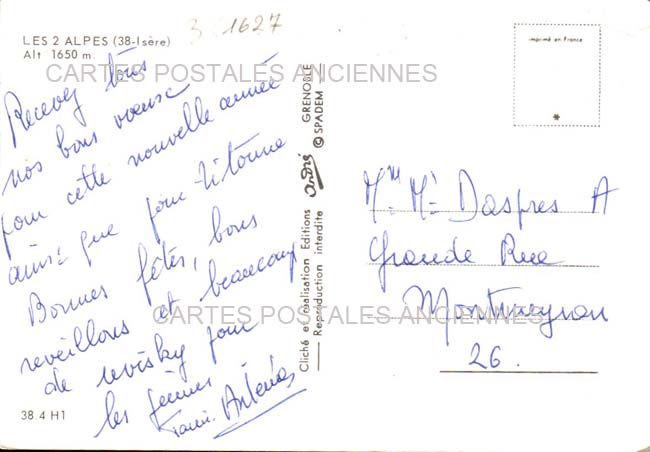 LES 2 ALPES (38-Isère)
Alt 1650 m.
3 1627
imprimé en France
*
CARTES POSTALES ANCIENNES
Recevez tous
nos bons voeux
pour cette nouvelle année
ainsi que pour
Bonnes fêtes, bons
reveillons et beaucoup
de wisky pour
les
38.4 H1
Cliché et réalisation Editions André GRENOBLE
Reproduction interdite © SPADEM
Mme Mr Daspres A
Grande Rue
Montmeyran
26.
CARTES POSTALES ANCIENNES